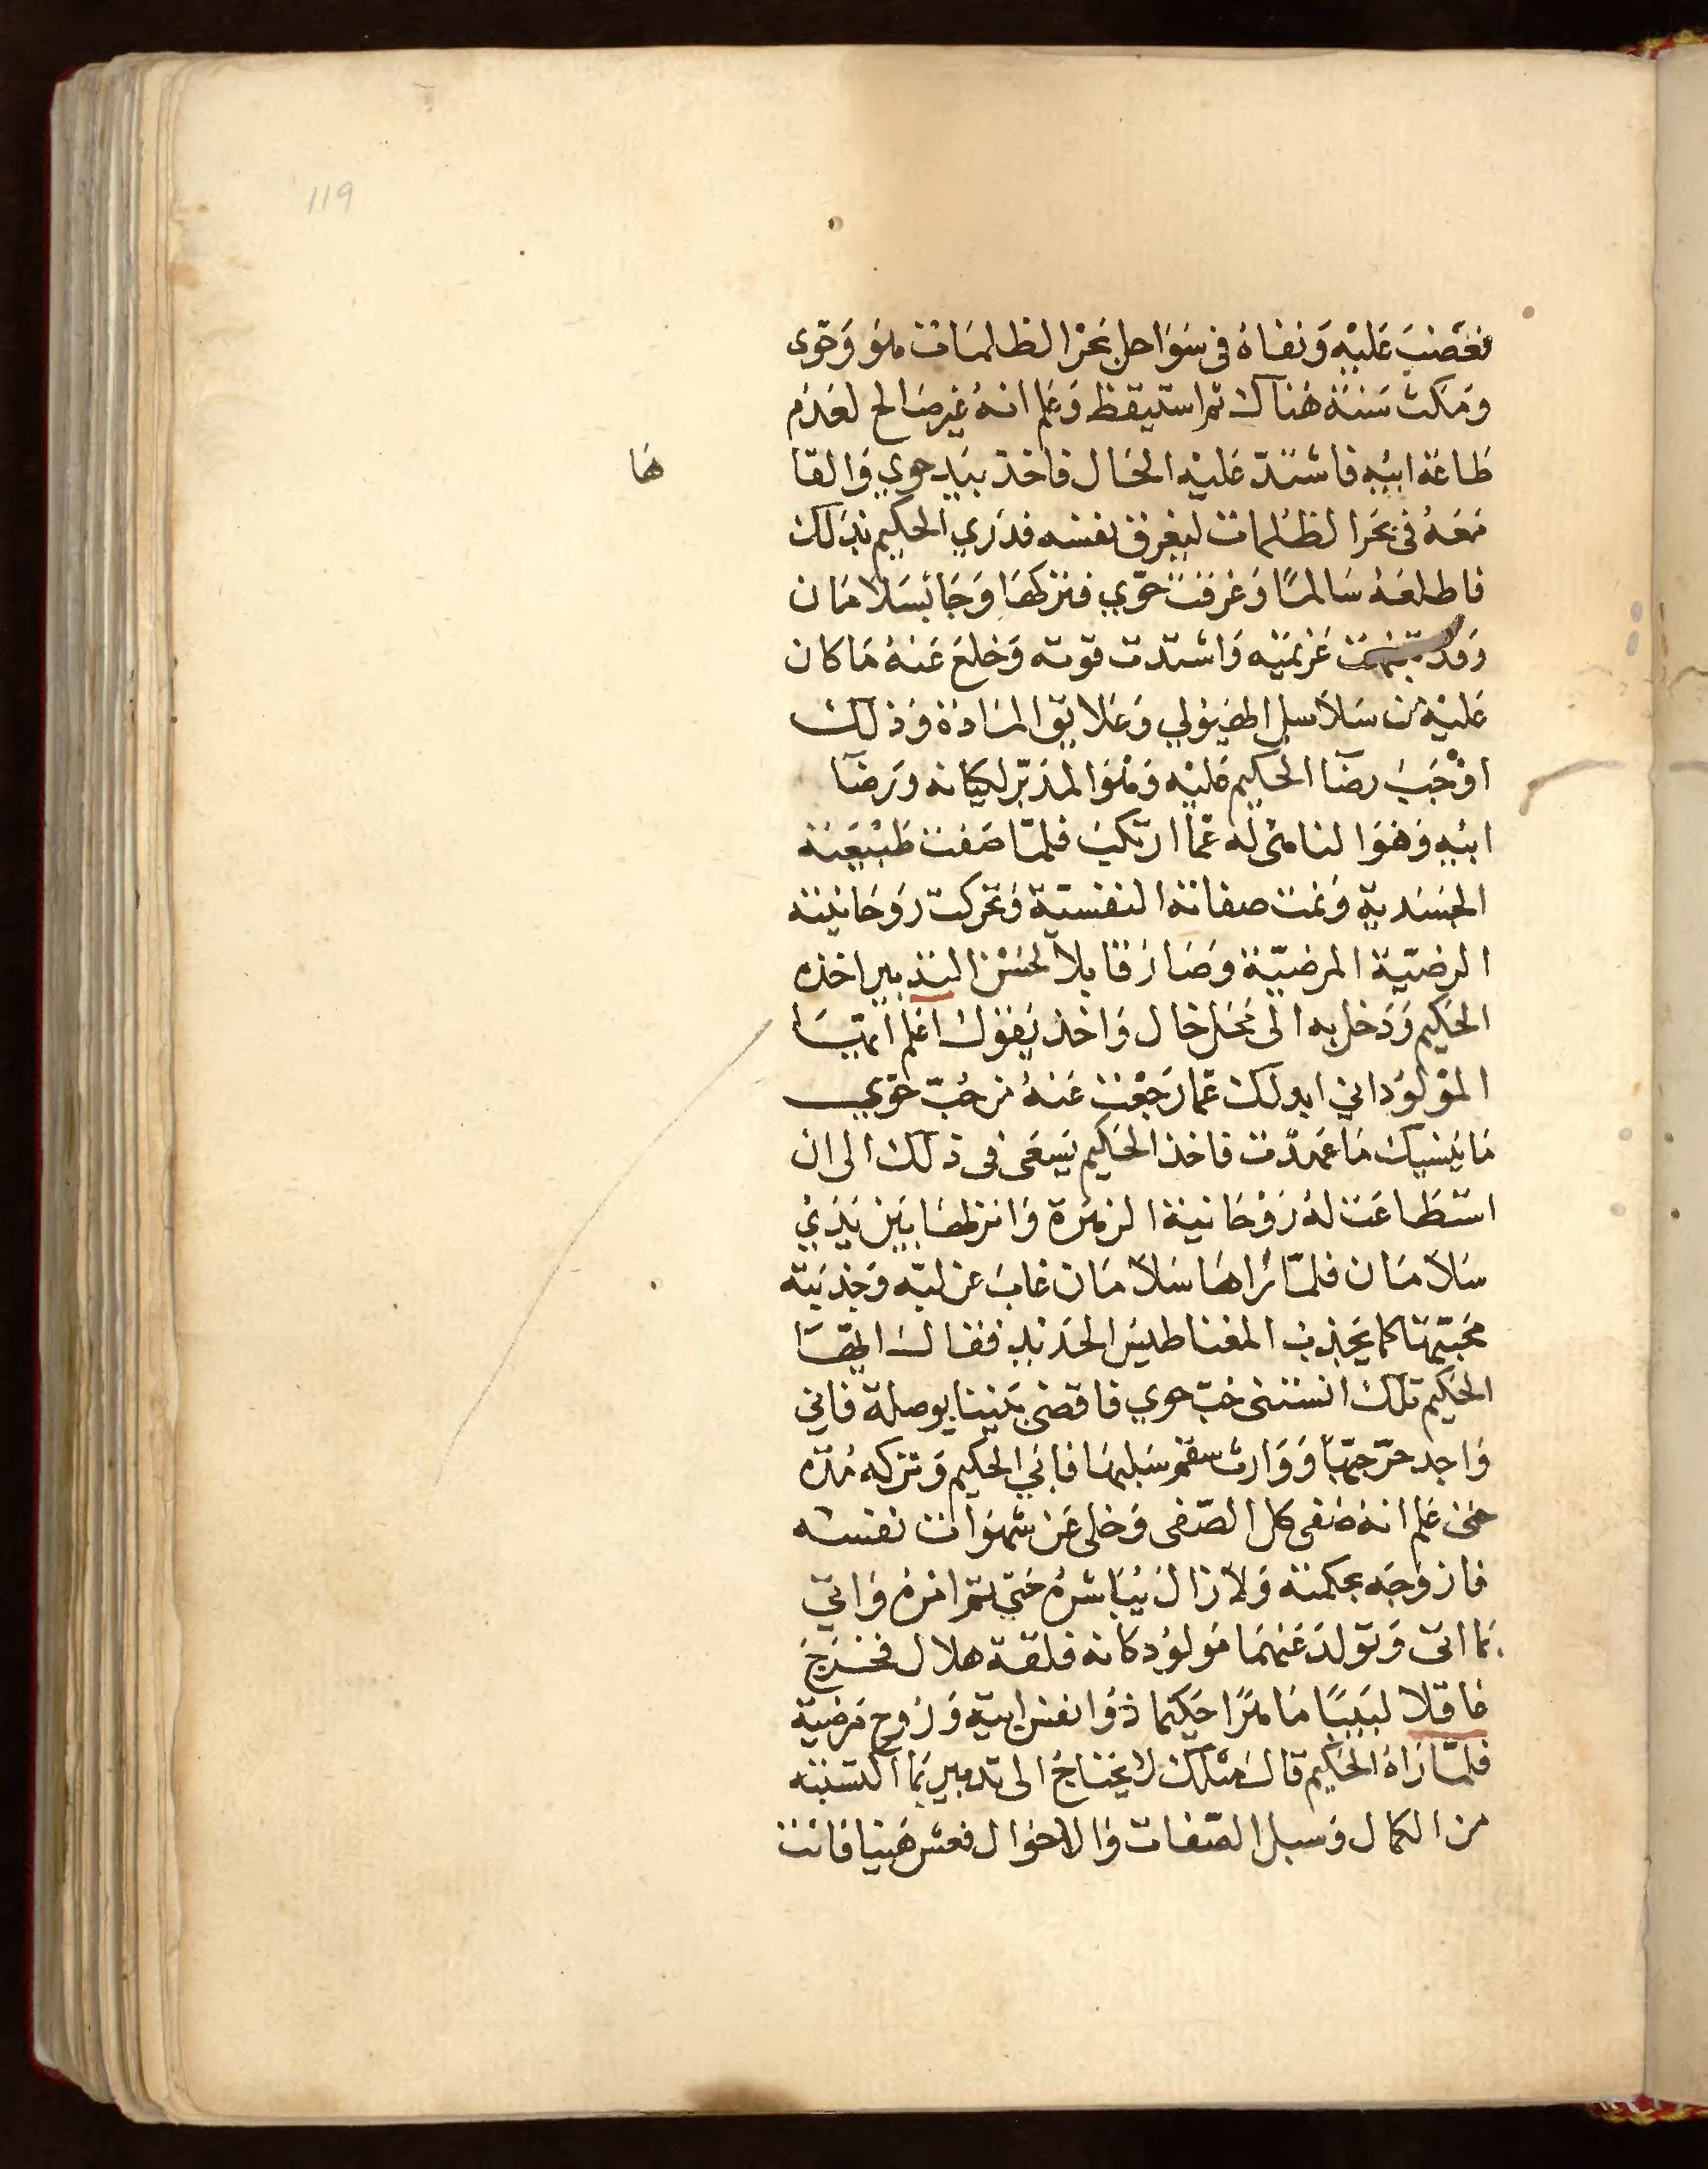 119
فغضب عليه ونفاه في سواحل بحر الظلمات هو وحوى
ومكث سنة هناك ثم استيقظ وعلم انه غير صالح لعدم
طاعة ابيه فاشتد عليه الحال فاخذ بيد حوي والقا
ها
معه في بحر الظلمات ليغرق نفسه فدري الحكيم بذلك
فاطلعه سالما وغرقت حوي فتركها وجا بسلامان
وقد عزيمته واشتدت قوته وخلع عنه ما كان
عليه من سلاسل الهيولي وعلايق المادة وذلك
اوجب رضا الحكيم عليه وهو المدبر لكيانه ورضا
ابيه وهو الناهى له عما ارتكب فلما صفت طبيعته
الجسدية ونمت صفاته النفسية وتحركت روحانيته
الرضية المرضية وصار قابلا لحسن التدبير اخذه
الحكيم ودخل به الى محل خال واخذ يقول اعلم ايها
المولود اني ابدلك عما رجعت عنه من حب حوي
ما ينسيك ما عهدت فاخذ الحكيم يسعى في ذلك الى ان
استطاعت له روحانية الزهرة وانزلها بين يدي
سلامان فلما راها سلامان غاب عن لبه وجذبته
محبتها كما يجذب المغناطيس الحديد فقال ايها
الحكيم تلك انستنى حب حوي فاقضى بيننا بوصلة فاني
واجد حر حبها ووارث سقم سلبها فابي الحكيم وتركه مدة
حتى علم انه صفى كل الصفى وخلى عن شهوات نفسه
فازوجه بحكمته ولا زال يباشره حتى تم امره واتي
بما اتى وتولد عنهما مولود كانه فلقة هلال فخرج
عاقلا لبيبا ماهرا حكيما ذوا نفس ابية وروح مرضية
فلما راه الحكيم قال مثلك لا يحتاج الى تدبير بما اكتسبته
من الكمال وسبل الصفات والاحوال فعش هنيا فانت